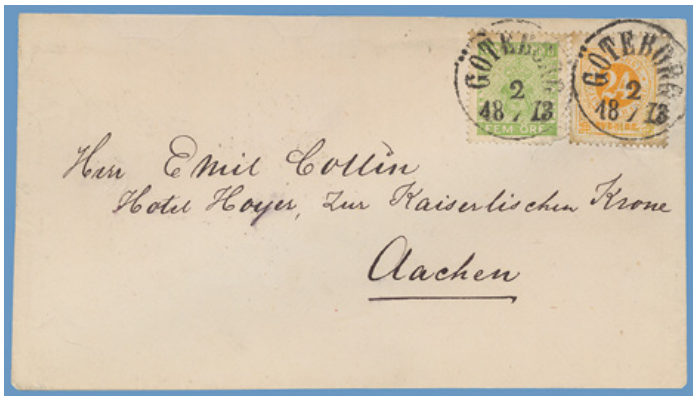 GÖTEBORG
2
18 / 7 73
FEM ÖRE
GÖTEBORG
2
18 / 7 73
24
Herr Emil Collin
Hotel Hoyer, Zur Kaiserlischen Krone
Aachen